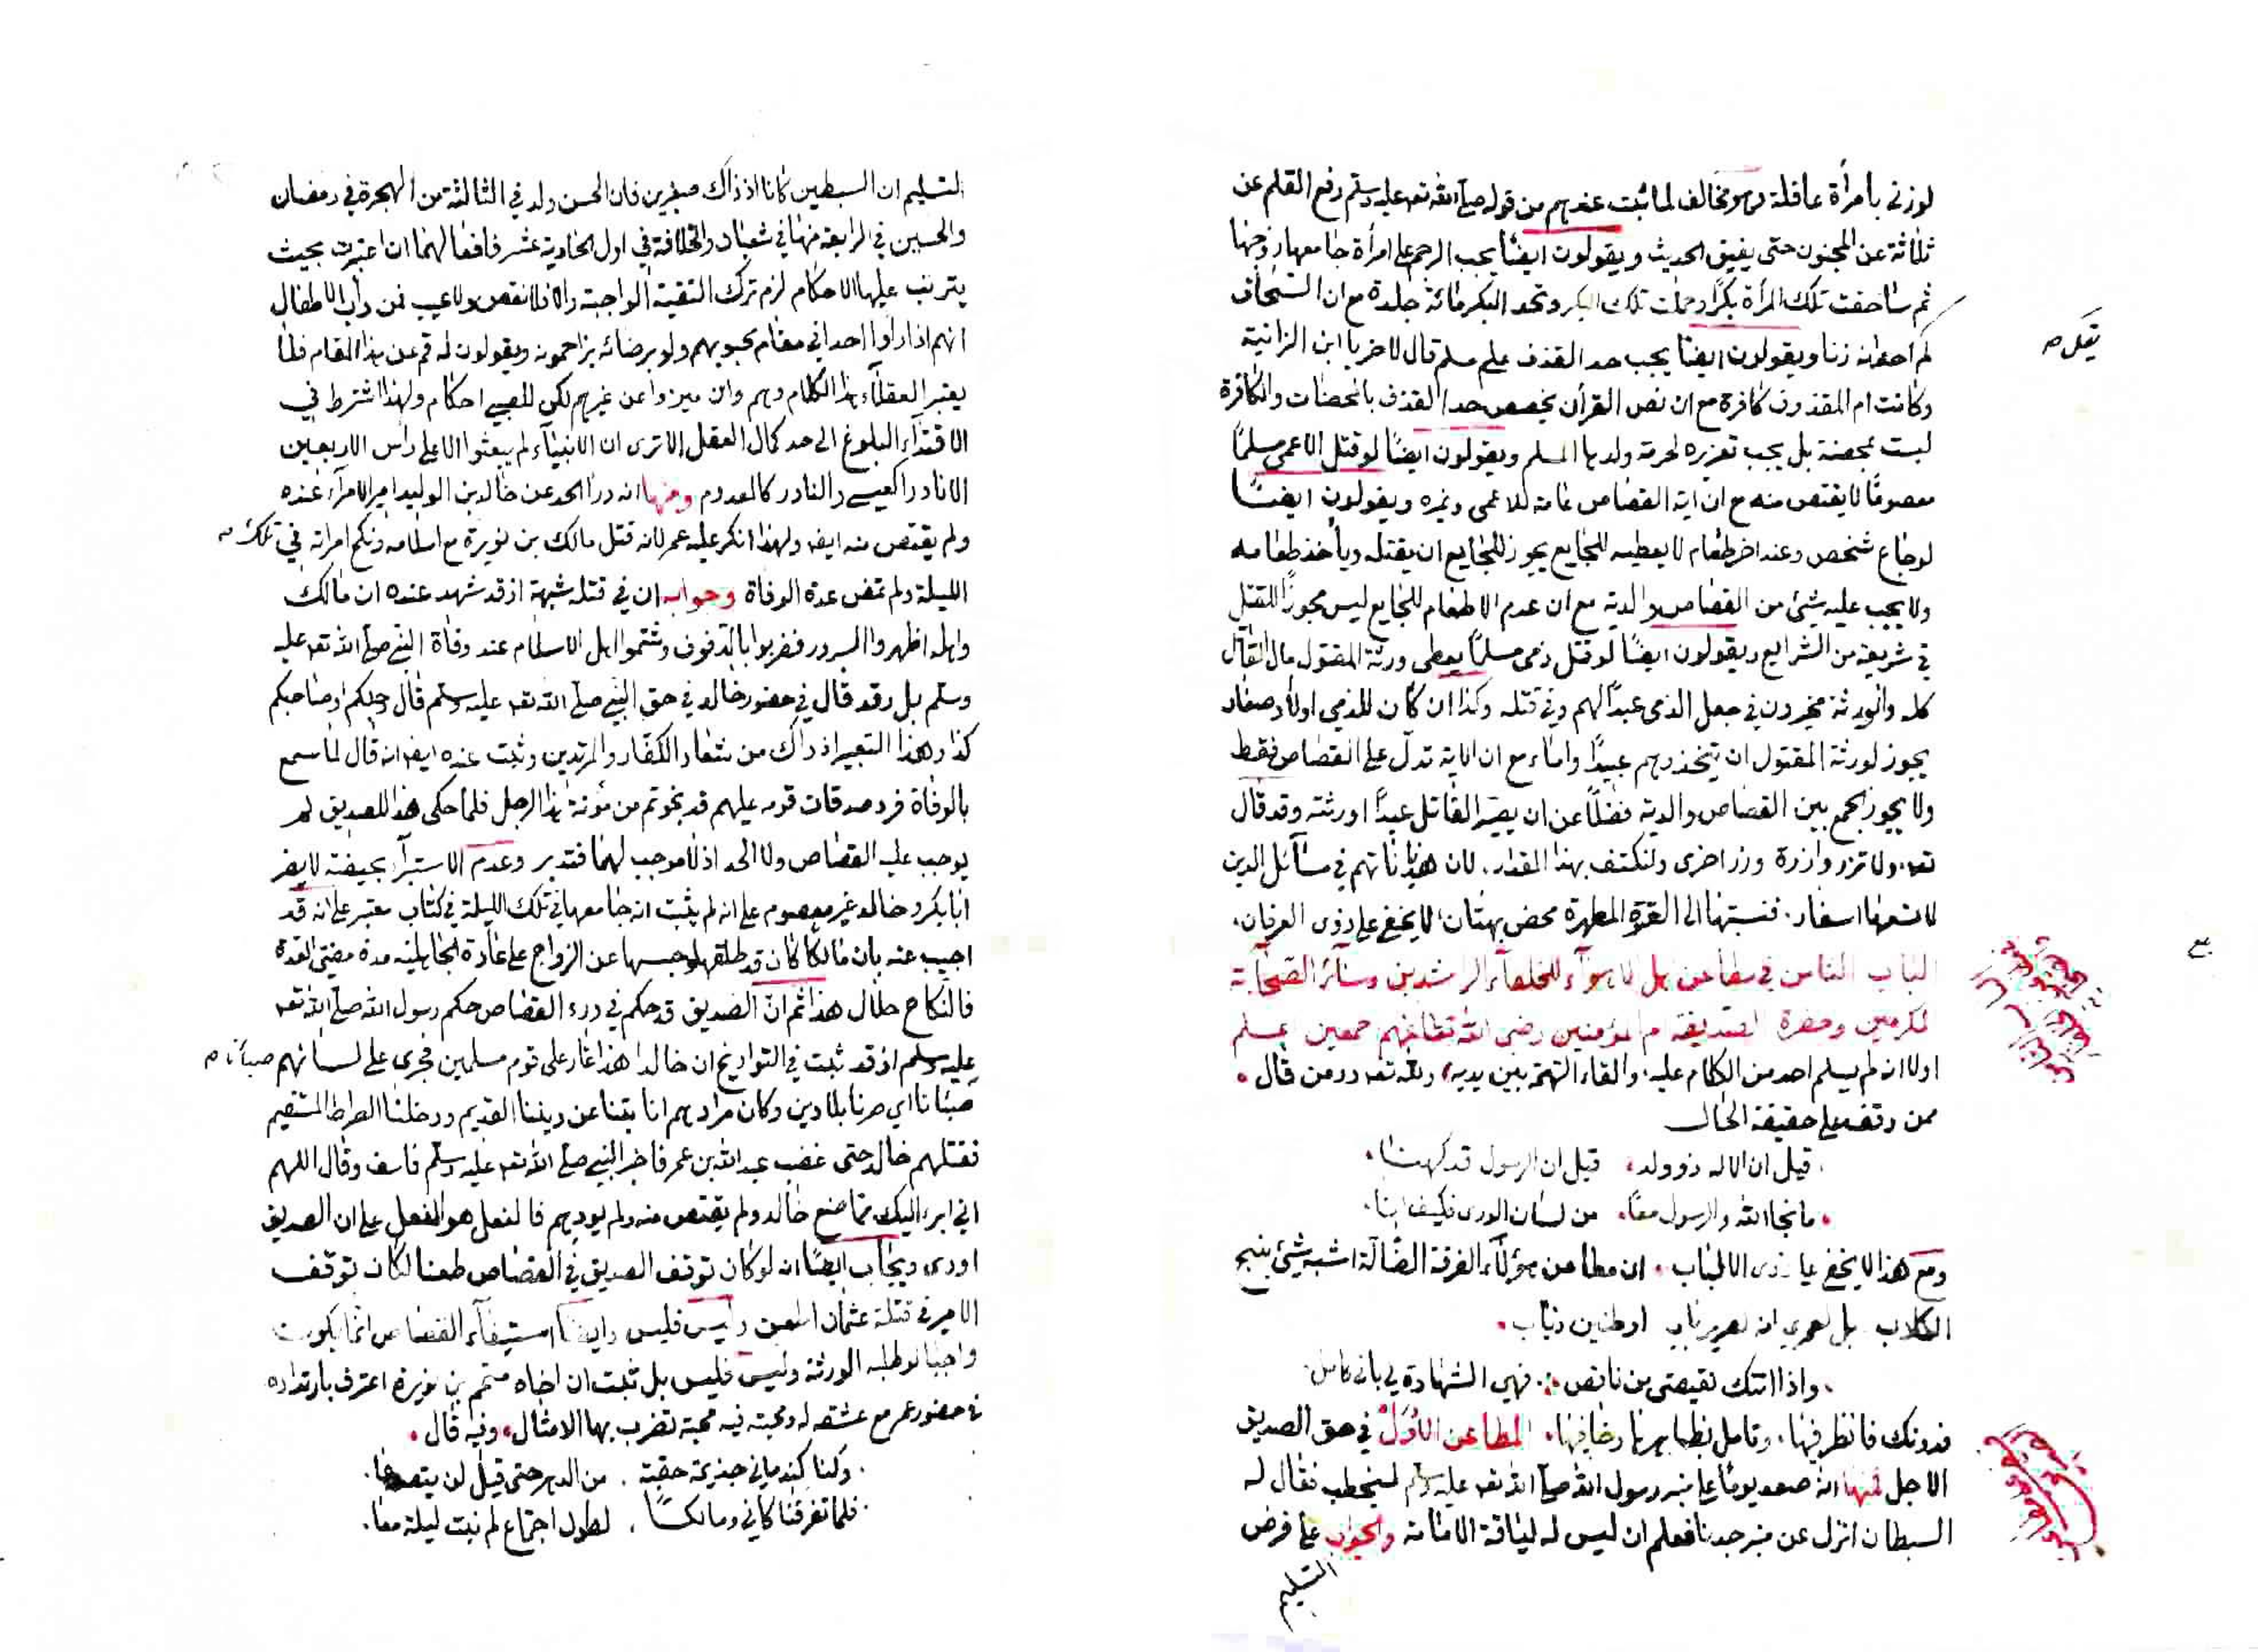 لو زنى بامرأة عاقلة وهو مخالف لما ثبت عندهم من قوله صلى الله تعه عليه وسلم رفع القلم عن
ثلاثة عن المجنون حتى يفيق الحديث ويقولون ايضًا يجب الرجم على امرأة جامعها زوجها
ثم ساحقت تلك المرأة بكرًا وحملت تلك البكر وتحد البكر مائة جلدة مع ان السحاق
لم احد انه زنا ويقولون ايضًا يجب حد القذف على مسلم قال لاخر يا ابن الزانية
يقل صح
وكانت ام المقذوف كافرة مع ان نص القرأن يخصص حد القذف بالمحصنات والكافرة
ليست بمحصنة بل يجب تعزيره لحرمة ولدها المسلم ويقولون ايضًا لو قتل الاعمى مسلمًا
معصومًا لا يقتص منه مع ان اية القصاص عامة للاعمى وغيره ويقولون ايضًا
لو جاع شخص وعند اخر طعام لا يعطيه للجايع يجوز للجايع ان يقتله ويأخذ طعامه
ولا يجب عليه شئ من القصاص والدية مع ان عدم الاطعام للجايع ليس مجوزًا للقتل
في شريعة من الشرايع ويقولون ايضًا لو قتل ذمى مسلمًا يعطى ورثة المقتول مال القاتل
كله والورثة مخيرون في جعل الذمى عبدًا لهم وفي قتله وكذا ان كان للذمي اولاد صغار
يجوز لورثة المقتول ان يتخذوهم عبيدًا واماء مع ان الاية تدل على القصاص فقط
ولا يجوز الجمع بين القصاص والدية فضلًا عن ان يصير القاتل عبدًا او رثته وقد قال
تعه، ولا تزر وازرة وزر اخرى ولنكتف بهذا المقدار. لان هذياناتهم في مسائل الدين
لا تسعها اسفار. فنسبتها الى العترة المطهرة محض بهتان، لا يخفى على ذوى العرفان.
الباب الثامن في مطاعن هل لاهوآء للخلفآء الراشدين وسائر الصحابة
المكرمين وحضرة الصديقة ام المؤمنين رضى الله تعالى عنهم اجمعين يسلم
اولا انه لم يسلم احد من الكلام عليه، والقاء التهمة بين يديه، ولله تعه در من قال.
ممن وقف على حقيقة الحال
قيل ان الاله ذو ولد، قيل ان الرسول قد كهنا.
ما نجا الله والرسول معًا، من لسان الورى فكيف انا.
ومع هذا لا يخفى على ذوى الالباب. ان مطاعن هؤلآء الفرقة الضالة اشبه شئ بنبح
الكلاب بل لعمري انه لصرير باب او طنين ذباب.
واذا اتتك نقيصتي من ناقص .: فهي الشهادة لي باني كامل.
فدونك فانظر فيها، وتامل بظاهرها وخافيها، المطاعن الاوّل في حق الصديق
الاجل فمنها انه صعد يومًا على منبر رسول الله صلى الله تعه عليه وسلم ليخطب فقال له
السبطان انزل عن منبر جدنا فعلم ان ليس له لياقة الامامة والجواب على فرض
التسليم
التسليم ان السبطين كانا اذ ذاك صغيرين فان الحسن ولد في الثالثة من الهجرة في رمضان
والحسين في الرابعة منها في شعبان والخلافة في اول الحادية عشر فافعالهما ان اعتبرت بحيث
يترتب عليها الاحكام لزم ترك التقية الواجبة والا فلا نقص ولا عيب فمن دأب الاطفال
انهم اذا راوا احدا في مقام محبوبهم ولو برضائه يزاحمونه ويقولون له قم عن هذا المقام فلا
يعتبر العقلآء هذا الكلام وهم وان ميزوا عن غيرهم لكن للصبى احكام ولهذا اشترط في
الاقتدآء البلوغ الى حد كمال العقل الا ترى ان الانبيآء لم يبعثوا الا على رأس الاربعين
الا نادرا كعيسى والنادر كالمعدوم ومنها انه درأ الحد عن خالد بن الوليد امير الامرآء عنده
ولم يقتص منه ايضه ولهذا انكر عليه عمر لانه قتل مالك بن نويرة مع اسلامه ونكح امراته في تلك صح
الليلة ولم تمض عدة الوفاة وجوابه ان في قتله شبهة اذ قد شهد عنده ان مالك
واهله اظهروا السرور فضربوا بالدفوف وشتموا اهل الاسلام عند وفاة النبي صلى الله تعه عليه
وسلم بل وقد قال في حضور خالد في حق النبي صلى الله تعه عليه وسلم قال رجلكم او صاحبكم
كذا وهذا التعبير اذ ذاك من شعار الكفار والمرتدين وثبت عنه ايضه انه قال لما سمع
بالوفاة فرد صدقات قومه عليهم قد نجوتم من مؤنة هذا الرجل فلما حكى هذا للصديق لم
يوجب عليه القصاص ولا الحد اذ لا موجب لهما فتدبر وعدم الاستبرآء بحيضة لا يضر
ابا بكر وخالد غير معصوم على انه لم يثبت انه جامعها في تلك الليلة في كتاب معتبر على انه قد
اجيب عنه بان مالكًا كان قد طلقها وحبسها عن الزواج على عادة الجاهلية مدة مضى العدة
فالنكاح حلال هذا ثم انّ الصديق قد حكم في درء القصاص حكم رسول الله صلى الله تعه
عليه وسلم اذ قد ثبت في التواريخ ان خالدا هذا اغار على قوم مسلمين فجرى على لسانهم صبأنا صح
صبأنا اي صرنا بلا دين وكان مرادهم انا تبنا عن ديننا القديم ودخلنا الصراط المستقيم
فقتلهم خالد حتى غضب عبد الله بن عمر فاخبر النبي صلى الله تعه عليه وسلم فاسف وقال اللهم
اني ابرء اليك مما صنع خالد ولم يقتص منه ولم يودهم فالفعل هو الفعل على ان الصديق
اودى ويجاب ايضًا انه لو كان توقف الصديق في القصاص طعنا لكان توقف
الامير في قتلة عثمان اطعن وليس فليس وايضًا استيفآء القصاص انما يكون
واجبا لو طلبه الورثة وليس فليس بل ثبت ان اخاه متمم بن نويرة اعترف بارتداده
في حضور عمر مع عشقه له ومحبته فيه محبة تضرب بها الامثال، وفيه قال.
وكنا كندماني جذيمة حقبة . من الدهر حتى قيل لن يتصدعا.
فلما تفرقنا كاني ومالكًا . لطول اجتماع لم نبت ليلة معا.